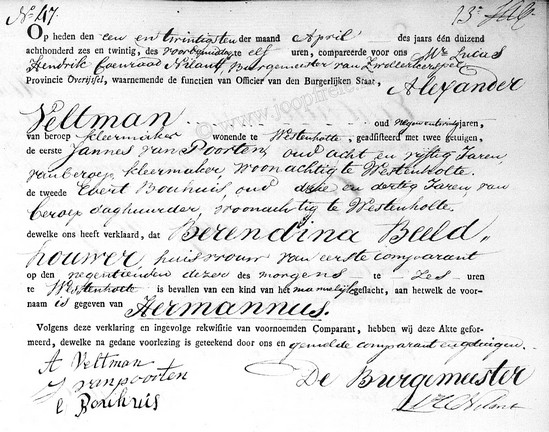 No. 47.
Op heden den een en twintigsten der maand April des jaars één duizend
achthonderd zes en twintig, des voormiddags elf uren, compareerde voor ons Mr. Lucas
Hendrik Coenraad Nilant, Burgemeester van Zwollerkerspel
Provincie Overijssel, waarnemende de functien van Officier van den Burgerlijken Staat, Alexander
Veltman oud negenentwintig jaren,
van beroep kleermaker wonende te Westenholte, geadsisteerd met twee getuigen,
de eerste Jannes van Poorten, oud acht en vijftig Jaren
van beroep kleermaker, woonachtig te Westenholte.
de tweede Ebert Bouhuis oud drie en dertig Jaren, van
beroep daghuurder, woonachtig te Westenholte.
dewelke ons heeft verklaard, dat Berendina Beeld„
houwer huisvrouw van eerste comparant
op den negentienden dezer des morgens te zes uren
te Westenholte is bevallen van een kind van het mannelijk geslacht, aan hetwelk de voor-
naam is gegeven van Hermannus.
Volgens deze verklaring en ingevolge rekwisitie van voornoemden Comparant, hebben wij deze Akte gefor-
meerd, dewelke na gedane voorlezing is geteekend door ons en gemelde comparant en getuigen.
A Veltman
J van poorten
E Bouhuis
De Burgemeester